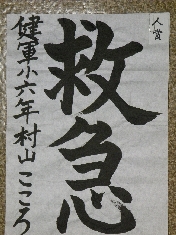 人賞
救急
健軍小六年村山こころ